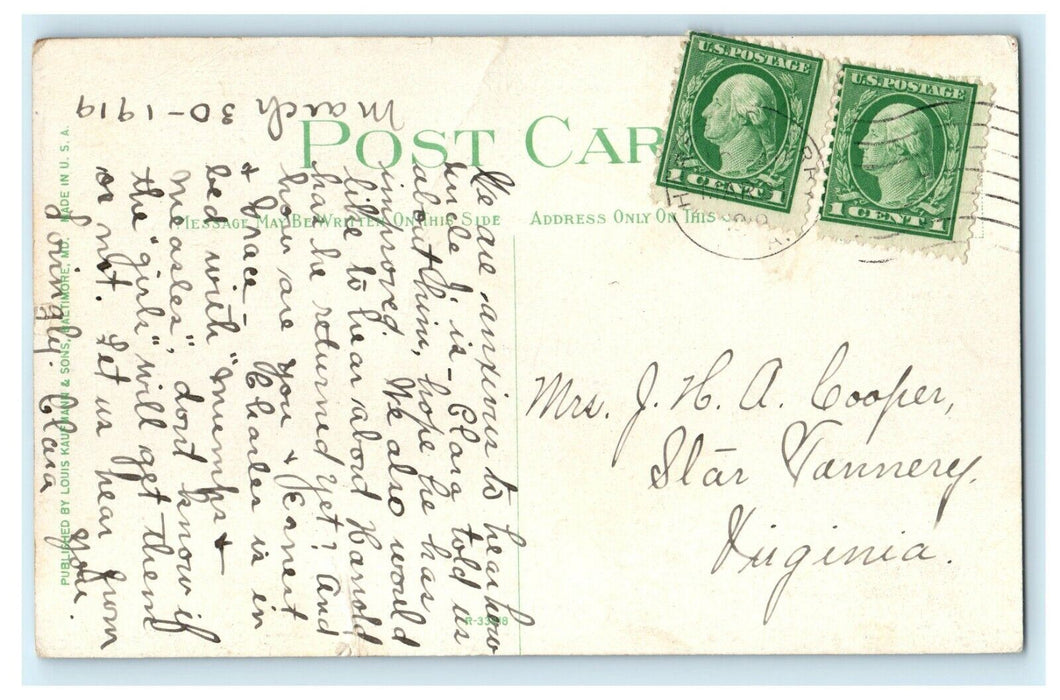 POST CAR
MESSAGE MAY BE WRITTEN ON THIS SIDE
ADDRESS ONLY ON THIS
U.S. POSTAGE
1 CENT 1
U.S. POSTAGE
1 CENT 1
March 30-1919
We are anxious to hear how
uncle J. is - Clara told us
about him, hope he has
improved. We also would
like to hear about Harold
has he returned yet? And
how are you & Earnest
& Grace - Charles is in
bed with "mumps &
measles", don't know if
the "girls" will get them
or not. Let us hear from
you.
Lovingly. Clara
Mrs. J. H. A. Cooper,
Star Tannery.
Virginia.
PUBLISHED BY LOUIS KAUFMANN & SONS, BALTIMORE, MD. MADE IN U. S. A.